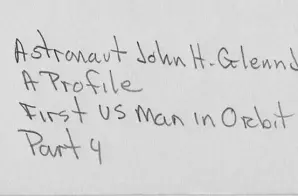 Astronaut John H. Glenn J
A Profile
First US Man in Orbit
Part 4